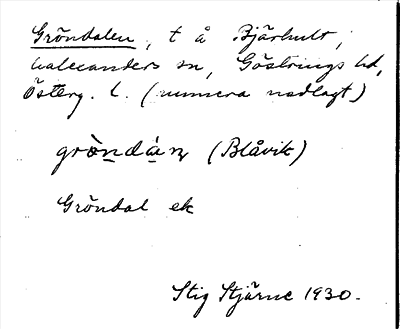 Gröndalen, t å Bjärhult,
Malexanders sn, Göstrings hd,
Österg. l. (numera nedlagt)
grö̀ndán (Blåvik)
Gröndal ek
Stig Stjärne 1930.